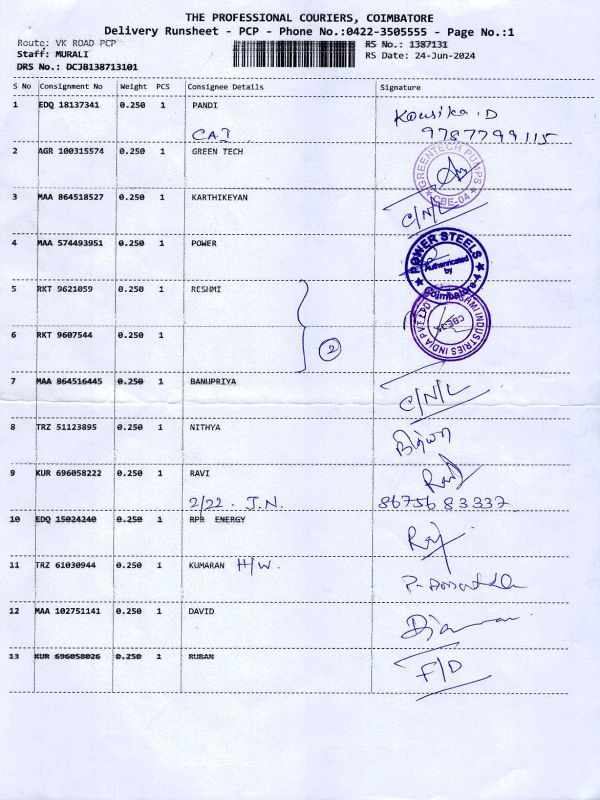 THE PROFESSIONAL COURIERS, COIMBATORE
Delivery Runsheet - PCP - Phone No.:0422-3505555 - Page No.:1
Route: VK ROAD PCP RS No.: 1387131
Staff: MURALI RS Date: 24-Jun-2024
DRS No.: DCJB138713101
S No Consignment No Weight PCS Consignee Details Signature
1 EDQ 18137341 0.250 1 PANDI Kousika.D
CAI 9787799115
2 AGR 100315574 0.250 1 GREEN TECH GREENTECH PUMPS CBE-04
3 MAA 864518527 0.250 1 KARTHIKEYAN C/N/L
4 MAA 574493951 0.250 1 POWER POWER STEELS Authenticated by Coimbatore-4
5 RKT 9621059 0.250 1 RESHMI INDUSTRIES INDIA PVT LTD
2
6 RKT 9607544 0.250 1
7 MAA 864516445 0.250 1 BANUPRIYA C/N/L
8 TRZ 51123895 0.250 1 NITHYA
9 KUR 696058222 0.250 1 RAVI
2/22. J.N. 8675683337
10 EDQ 15024240 0.250 1 RPR ENERGY
11 TRZ 61030944 0.250 1 KUMARAN H/W.
12 MAA 102751141 0.250 1 DAVID
13 KUR 696058026 0.250 1 RUBAN F/D